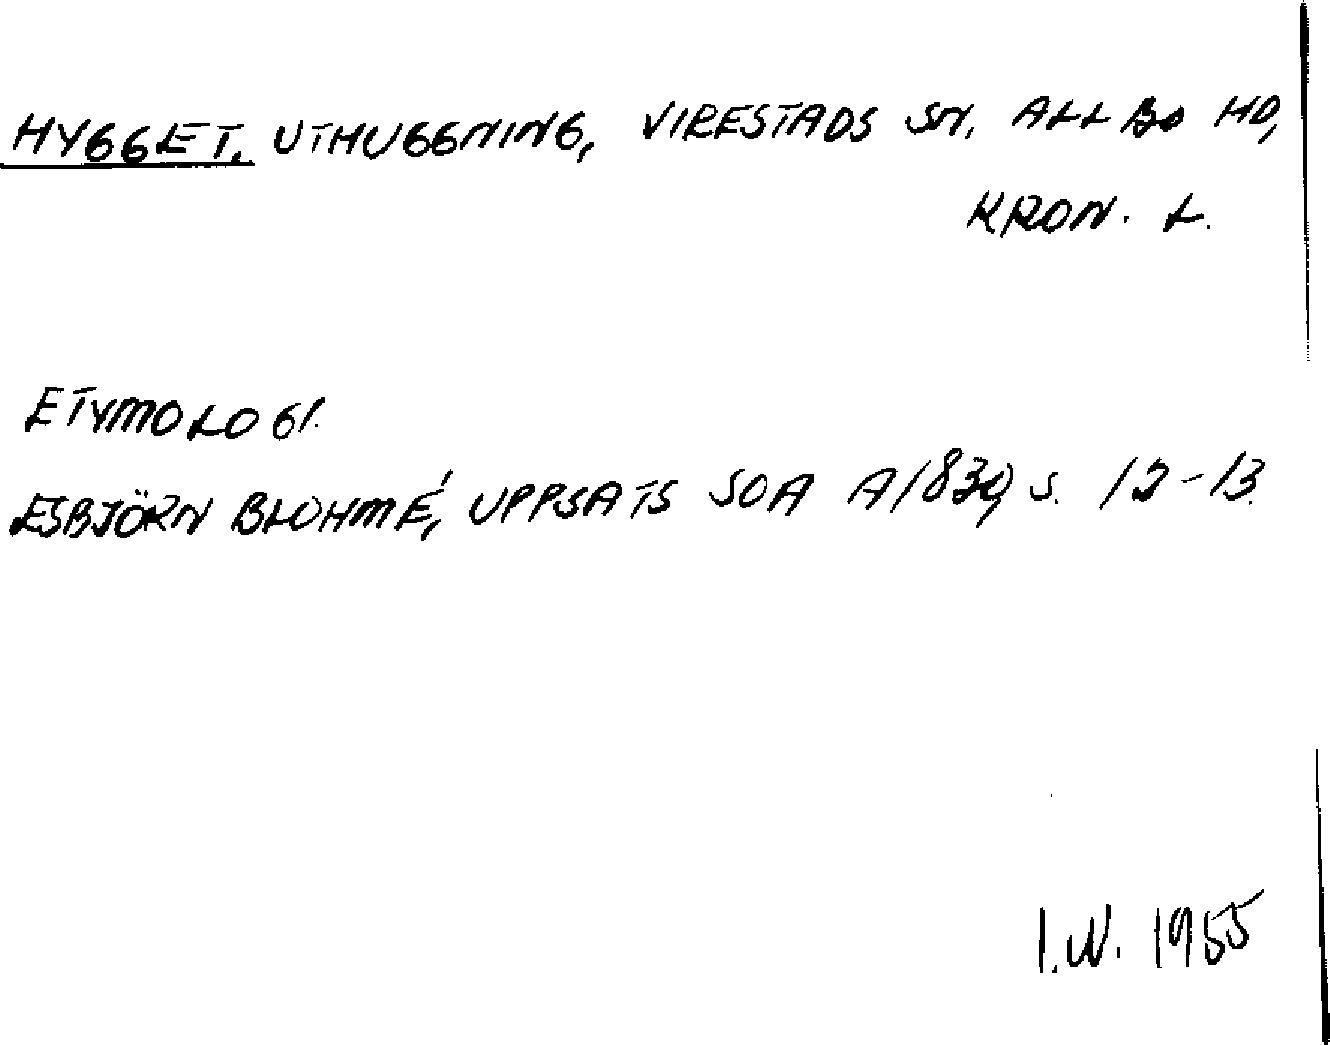 HYGGET. UTHUGGNING, VIRESTADS SN. ALLBO HD,
KRON. L.
ETYMOLOGI.
ESBJÖRN BLOHMÉ, UPPSATS SOA A1830, S. 12-13.
I.W. 1955